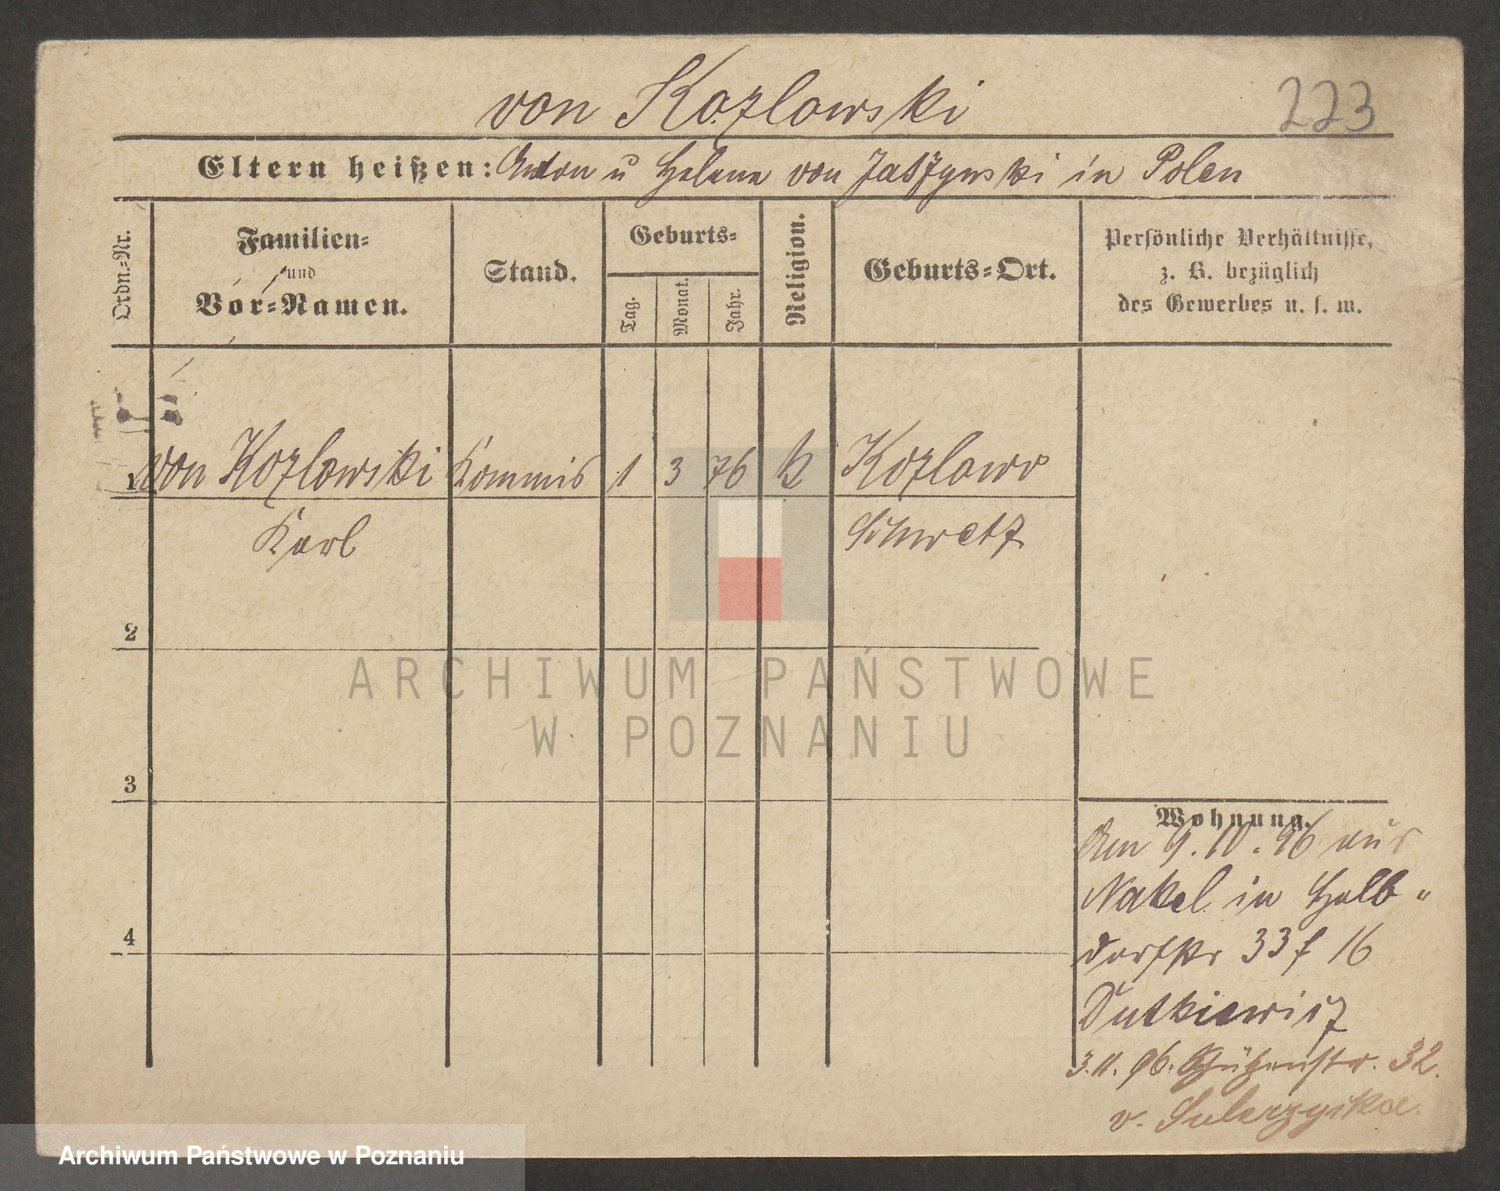 von Kozlowski
223
Eltern heißen: Anton u Helene von Jasszynski in Polen
Ordn.-Nr.
Familien-
und
Vor-Namen.
Stand.
Geburts-
Tag.
Monat.
Jahr.
Religion.
Geburts-Ort.
Persönliche Verhältnisse,
z. B. bezüglich
des Gewerbes u. s. w.
1 von Kozlowski Kommis 1 3 76 k Kozlowo
Karl Schwetz
2
3
4
Wohnung.
Am 9.10.96 aus
Nakel in Halb-
dorfstr 33 f 16
Dutkiewicz
3.11.96. Schützenstr. 32.
v.
ARCHIWUM PAŃSTWOWE
W POZNANIU
Archiwum Państwowe w Poznaniu